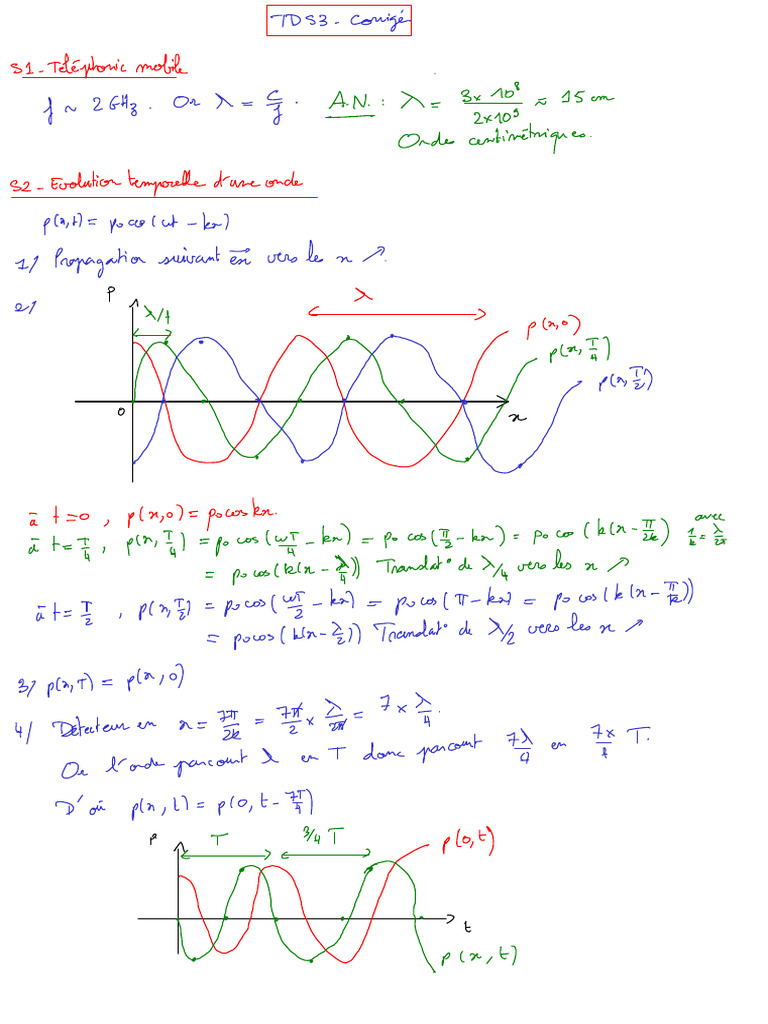 TD S3 - Corrigé
S1 - Téléphonie mobile
f ~ 2 GHz. Or λ = c/f. A.N. : λ = 3x10⁸/2x10⁹ ≈ 15 cm
Ondes centimétriques.
S2 - Evolution temporelle d'une onde
p(x,t) = p₀ cos(ωt - kx)
1/ Propagation suivant e⃗x vers les x ↗.
2/
P
λ/4
λ
p(x,0)
p(x,T/4)
p(x,T/2)
0
x
à t=0, p(x,0) = p₀ cos kx.
à t=T/4, p(x,T/4) = p₀ cos(ωT/4 - kx) = p₀ cos(π/2 - kx) = p₀ cos(k(x - π/2k)) avec 1/k = λ/2π
= p₀ cos(k(x - λ/4)) Translat° de λ/4 vers les x ↗
à t=T/2, p(x,T/2) = p₀ cos(ωT/2 - kx) = p₀ cos(π - kx) = p₀ cos(k(x - π/k))
= p₀ cos(k(x - λ/2)) Translat° de λ/2 vers les x ↗
3/ p(x,T) = p(x,0)
4/ Détecteur en x = 7π/2k = 7π/2 x λ/2π = 7 x λ/4.
Or l'onde parcourt λ en T donc parcourt 7λ/4 en 7x/4 T.
D'où p(x,t) = p(0, t - 7T/4)
P
T
3/4 T
p(0,t)
t
p(x,t)